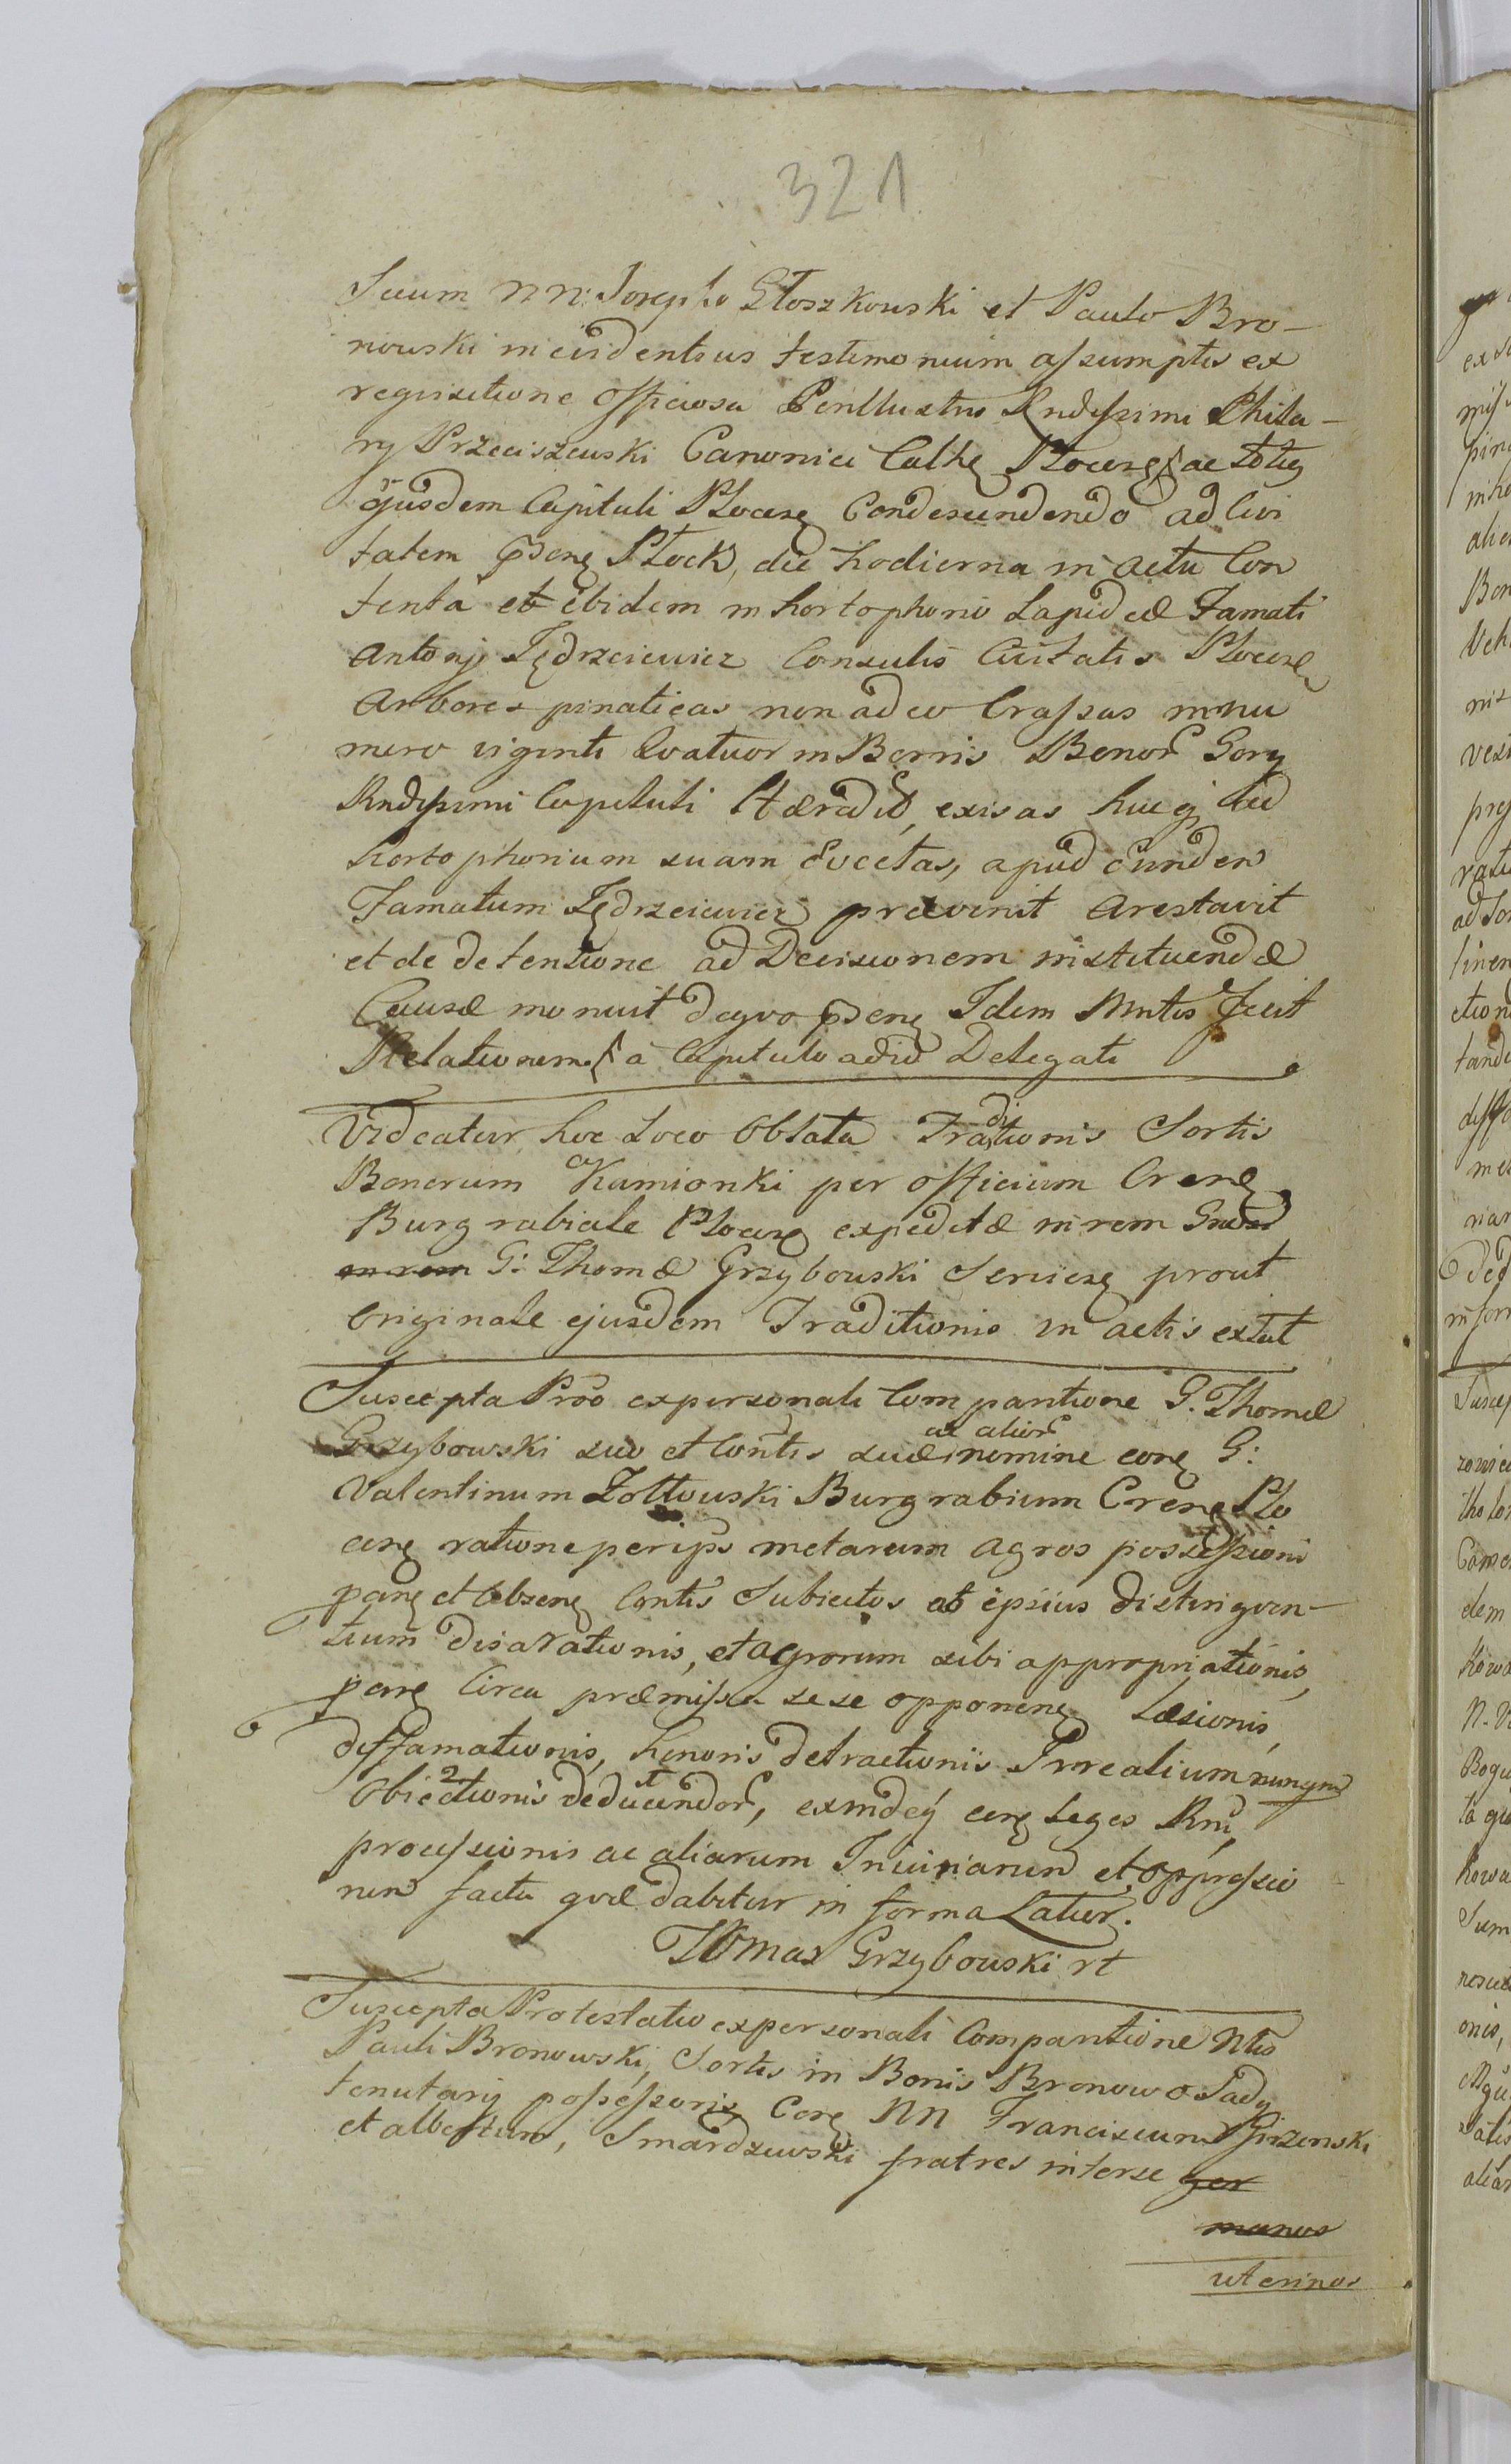 321
Secum NN: Josepho Głoszkowski et Paulo Bro-
nowski in evidentius testimonium assumptis ex
requisitione officiosa Perillustris Rndissimi Hila-
ry Przeciszewski Canonici Cathę Plocesę ac totię
ejusdem Capituli Plocesę Condescendendo ad Civi
tatem psenę Płock, die hodierna in actu Con
tenta et ibidem in hortophorio Lapideæ Famati
Antonji Jędrzeiewicz Consulis Civitatis Plocesę
Arbores pinaticas non adeo Crassas in nu
mero viginti Qvatuor in Borris Bonor Gory
Rndissimi Capituli Hæredit, exisas hucq ad
hortophorium suam Evectas, apud eunden
Famatum Jędrzeiewicz prævenit Arestavit
et de detentione ad Decisionem instituendæ
Causæ monuit deqvo psenę Idem Mntis fecit
Relationem à Capitulo adid Delegati
Videatur hoc Loco Oblata Traditionis Sortis
Bonorum Kamionki per officium Crenę
Burgrabiale Plocesę expeditæ in rem
in rem G: Thomæ Grzybowski Servięsę prout
Originale ejusdem Traditionis in actis extat
Suscepta Pröo expersonali Comparitione G. Thomæ
Grzybowski suo et Contis suæ ac alior nomine corę G:
Valentinum Zołtowski Burgrabium Crenę Plo
cesę ratione perips metarum agros possessioni
parę et Obsenę Contis Subiectos ab ipsius distingven-
tium disarationis, et agrorum sibi appropriationis,
parę Circa præmissa sese opponenę Læsionis,
diffamationis, honoris detractionis Irrealium nunqm
Obiectionis deducendor, exindeq corę Leges Rni
processionis ac aliarum Iniuriarum et oppressio
nun facta qvæ dabitur in forma Latior.
Tomas Grzybowski rt
Suscepta Protestatio expersonali Comparitione Ntis
Pauli Bronowski, Sortis in Bonis Bronowo Sady
tenutarij possessoris Corę NN Franciscum
et albertum, Smardzewski fratres interse ger
manos
uterinos